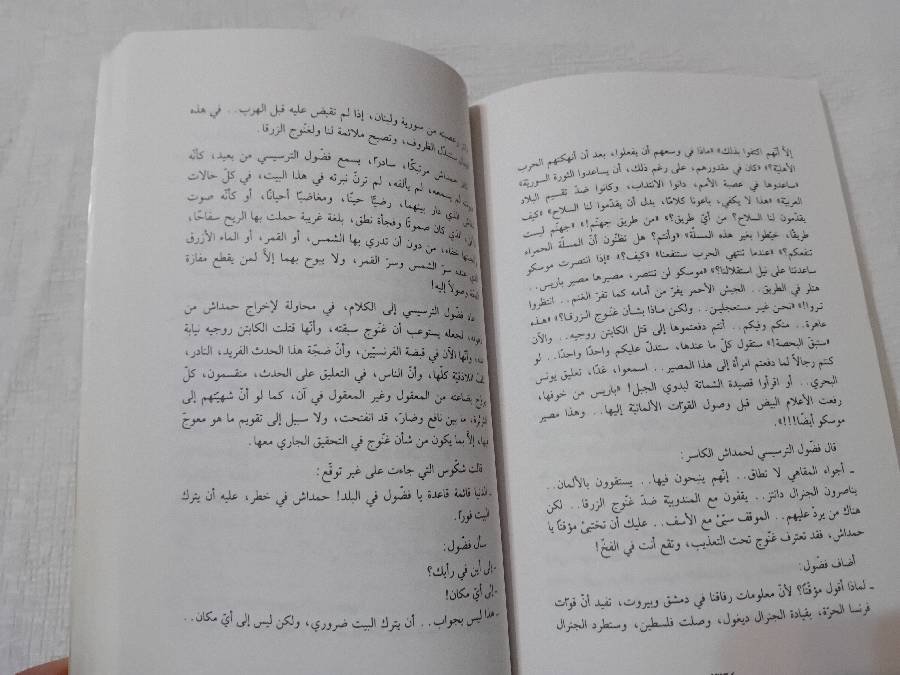 إلاّ أنّهم اكتفوا بذلك» «ماذا في وسعهم أن يفعلوا، بعد أن أنهكتهم الحرب
الأهليّة؟» «كان في مقدورهم، على رغم ذلك، أن يساعدوا الثورة السوريّة»
«ساعدوها في عصبة الأمم، دانوا الانتداب، وكانوا ضدّ تقسيم البلاد
العربيّة» «هذا لا يكفي، باعونا كلامًا، بدل أن يقدّموا لنا السلاح» «كيف
يقدّمون لنا السلاح؟ من أيّ طريق؟» «من طريق جهنّم!» «جهنّم ليست
طريقًا، خيّطوا بغير هذه المسلّة» «وأنتم؟ هل تظنّون أنّ المسلّة الحمراء
تنفعكم؟» «عندما تنتهي الحرب ستنفعنا» «كيف؟» «إذا انتصرت موسكو
ساعدتنا على نيل استقلالنا؟» «موسكو لن تنتصر، مصيرها مصير باريس..
هتلر في الطريق.. الجيش الأحمر يفرّ من أمامه كما تفرّ الغنم.. انتظروا
تروا!» «نحن غير مستعجلين.. ولكن ماذا بشأن غنّوج الزرقا؟» «هذه
عاهرة.. منكم وفيكم.. أنتم دفعتموها إلى قتل الكابتن روجيه.. والآن
«ستبقّ البحصة!» ستقول كلّ ما عندها، ستدلّ عليكم واحدًا واحدًا.. لو
كنتم رجالاً لما دفعتم امرأة إلى هذا المصير.. اسمعوا، غدًا، تعليق يونس
البحري.. أو اقرأوا قصيدة الشماتة لبدوي الجبل! «باريس من خوفها،
رفعت الأعلام البيض قبل وصول القوّات الألمانيّة إليها.. وهذا مصير
موسكو أيضًا!!!!».
قال فضّول الترسيسي لحمداش الكاسر:
ـ أجواء المقاهي لا تطاق.. إنّهم ينبحون فيها.. يستقوون بالألمان..
يناصرون الجنرال دانتز.. يقفون مع المندوبية ضدّ غنّوج الزرقا.. لكن
هناك من يردّ عليهم.. الموقف سيّئ مع الأسف.. عليك أن تختبئ مؤقّتًا يا
حمداش، فقد تعترف غنّوج تحت التعذيب، وتقع أنت في الفخّ!
أضاف فضّول:
ـ لماذا أقول مؤقّتًا؟ لأنّ معلومات رفاقنا في دمشق وبيروت، تفيد أنّ قوّات
فرنسا الحرّة، بقيادة الجنرال ديغول، وصلت فلسطين، وستطرد الجنرال
وعصبته من سورية ولبنان، إذا لم تقبض عليه قبل الهرب.. في هذه
ستتبدّل الظروف، وتصبح ملائمة لنا ولغنّوج الزرقا.
حمداش مرتبكًا، سادرًا، يسمع فضّول الترسيسي من بعيد، كأنّه
لم يسمعه، لم يألفه، لم ترنّ نبرته في هذا البيت، في كلّ حالات
الذي دار بينهما، رضيًّا حينًا، ومغاضبًا أحيانًا، أو كأنّه صوت
الذي كان صموتًا وفجأة نطق، بلغة غريبة حملت بها الريح سفاحًا،
خفاء، من دون أن تدري بها الشمس، أو القمر، أو الماء الأزرق
عنده سرّ الشمس وسرّ القمر، ولا يبوح بهما إلاّ لمن يقطع مفازة
وصولاً إليه!
عاد فضّول الترسيسي إلى الكلام، في محاولة لإخراج حمداش من
لجعله يستوعب أن غنّوج سبقته، وأنّها قتلت الكابتن روجيه نيابة
وأنّها الآن في قبضة الفرنسيّين، وأنّ ضجّة هذا الحدث الفريد، النادر،
اللاذقيّة كلّها، وأنّ الناس، في التعليق على الحدث، منقسمون، كلّ
يروّج بضاعته من المعقول وغير المعقول في آن، كما لو أنّ شهيّتهم إلى
الثرثرة، ما بين نافع وضارّ، قد انفتحت، ولا سبيل إلى تقويم ما هو معوجّ
فيها، إلاّ بما يكون من شأن غنّوج في التحقيق الجاري معها.
قالت شكّوس التي جاءت على غير توقّع:
ـ الدنيا قائمة قاعدة يا فضّول في البلد! حمداش في خطر، عليه أن يترك
البيت فورًا.
سأل فضّول:
ـ إلى أين في رأيك؟
ـ إلى أيّ مكان!
ـ هذا ليس بجواب.. أن يترك البيت ضروري، ولكن ليس إلى أيّ مكان..